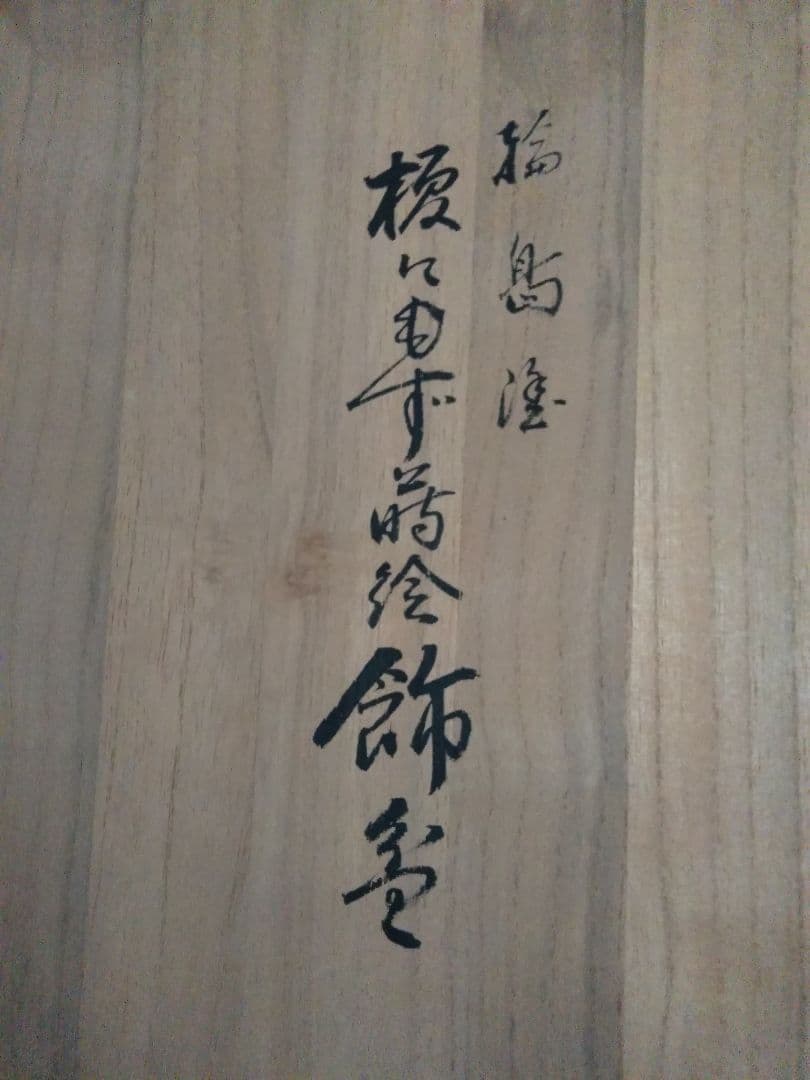 輪島塗
榎にもず蒔絵飾盆